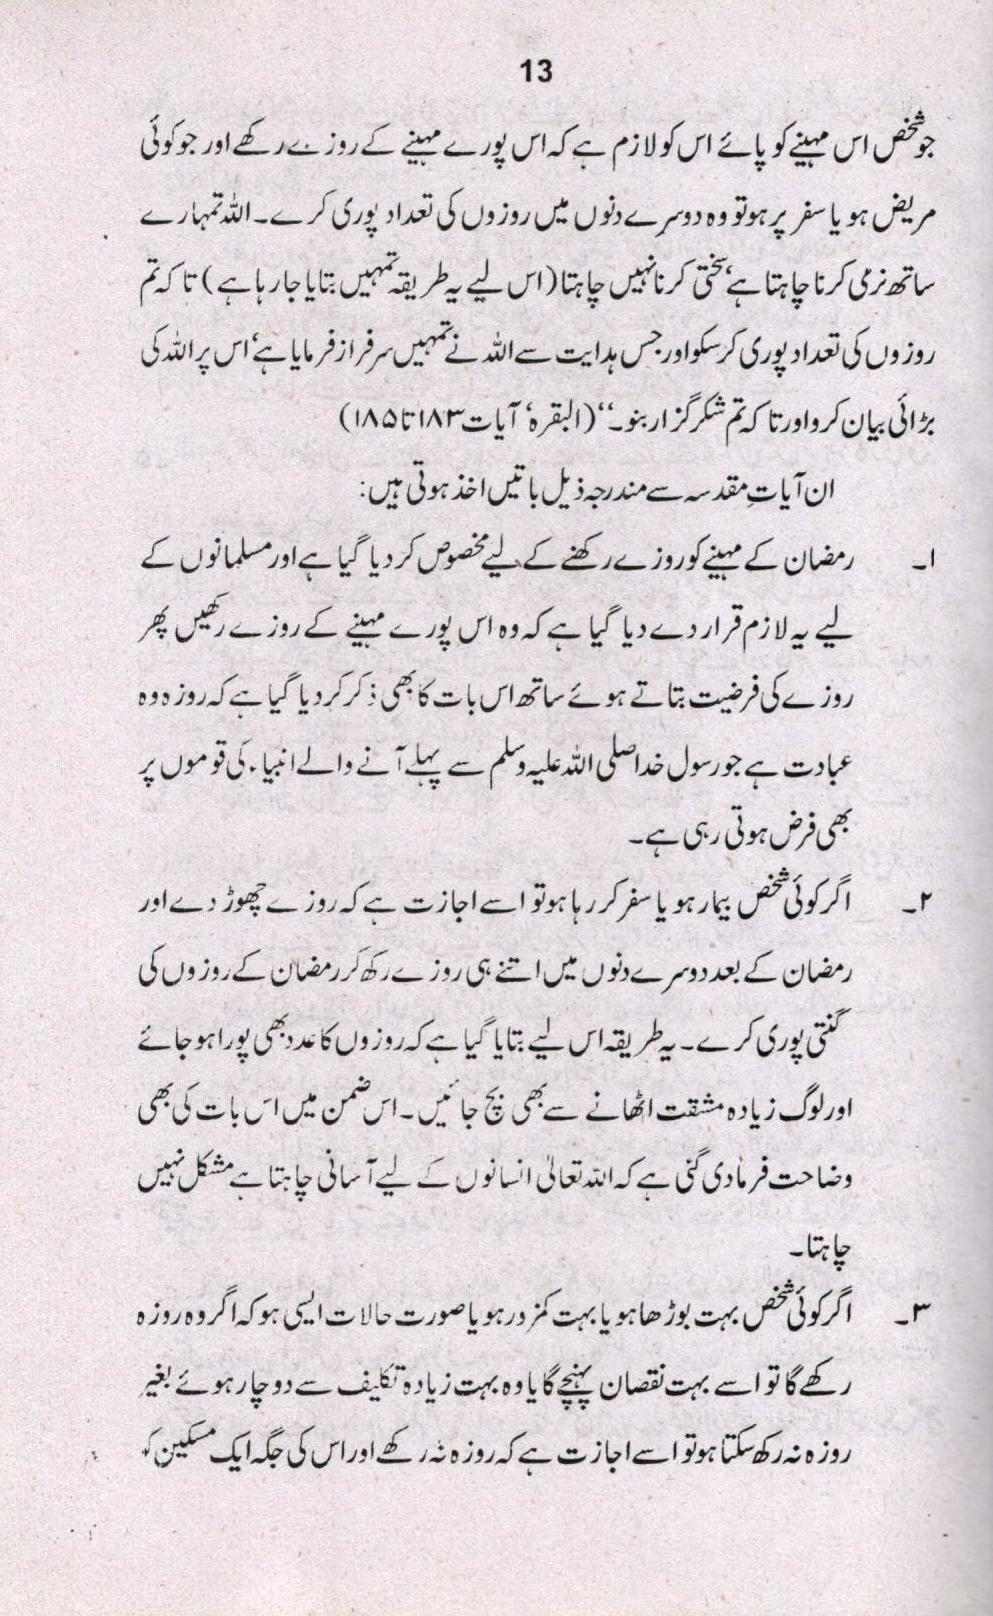 13
جو شخص اس مہینے کو پائے اس کو لازم ہے کہ اس پورے مہینے کے روزے رکھے اور جو کوئی
مریض ہو یا سفر پر ہو تو وہ دوسرے دنوں میں روزوں کی تعداد پوری کرے۔ اللہ تمہارے
ساتھ نرمی کرنا چاہتا ہے‘ سختی کرنا نہیں چاہتا (اس لیے یہ طریقہ تمہیں بتایا جا رہا ہے) تا کہ تم
روزوں کی تعداد پوری کر سکو اور جس ہدایت سے اللہ نے تمہیں سرفراز فرمایا ہے‘ اس پر اللہ کی
بڑائی بیان کرو اور تا کہ تم شکر گزار بنو۔‘‘ (البقرہ‘ آیات ۱۸۳ تا ۱۸۵)
ان آیاتِ مقدسہ سے مندرجہ ذیل باتیں اخذ ہوتی ہیں:
۱۔ رمضان کے مہینے کو روزے رکھنے کے لیے مخصوص کر دیا گیا ہے اور مسلمانوں کے
لیے یہ لازم قرار دے دیا گیا ہے کہ وہ اس پورے مہینے کے روزے رکھیں پھر
روزے کی فرضیت بتاتے ہوئے ساتھ اس بات کا بھی ذکر کر دیا گیا ہے کہ روزہ وہ
عبادت ہے جو رسول خدا صلی اللہ علیہ وسلم سے پہلے آنے والے انبیاء کی قوموں پر
بھی فرض ہوتی رہی ہے۔
۲۔ اگر کوئی شخص بیمار ہو یا سفر کر رہا ہو تو اسے اجازت ہے کہ روزے چھوڑ دے اور
رمضان کے بعد دوسرے دنوں میں اتنے ہی روزے رکھ کر رمضان کے روزوں کی
گنتی پوری کرے۔ یہ طریقہ اس لیے بتایا گیا ہے کہ روزوں کا عدد بھی پورا ہو جائے
اور لوگ زیادہ مشقت اٹھانے سے بھی بچ جائیں۔ اس ضمن میں اس بات کی بھی
وضاحت فرما دی گئی ہے کہ اللہ تعالیٰ انسانوں کے لیے آسانی چاہتا ہے مشکل نہیں
چاہتا۔
۳۔ اگر کوئی شخص بہت بوڑھا ہو یا بہت کمزور ہو یا صورت حالات ایسی ہو کہ اگر وہ روزہ
رکھے گا تو اسے بہت نقصان پہنچے گا یا وہ بہت زیادہ تکلیف سے دوچار ہوئے بغیر
روزہ نہ رکھ سکتا ہو تو اسے اجازت ہے کہ روزہ نہ رکھے اور اس کی جگہ ایک مسکین کو